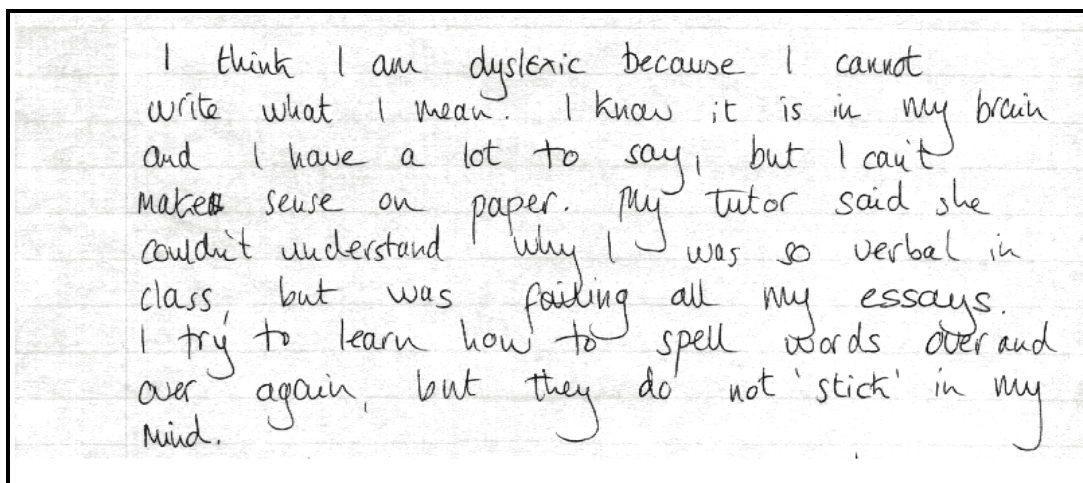 I think I am dyslexic because I cannot
write what I mean. I know it is in my brain
and I have a lot to say, but I can't
make sense on paper. My tutor said she
couldn't understand why I was so verbal in
class, but was failing all my essays.
I try to learn how to spell words over and
over again, but they do not 'stick' in my
mind.